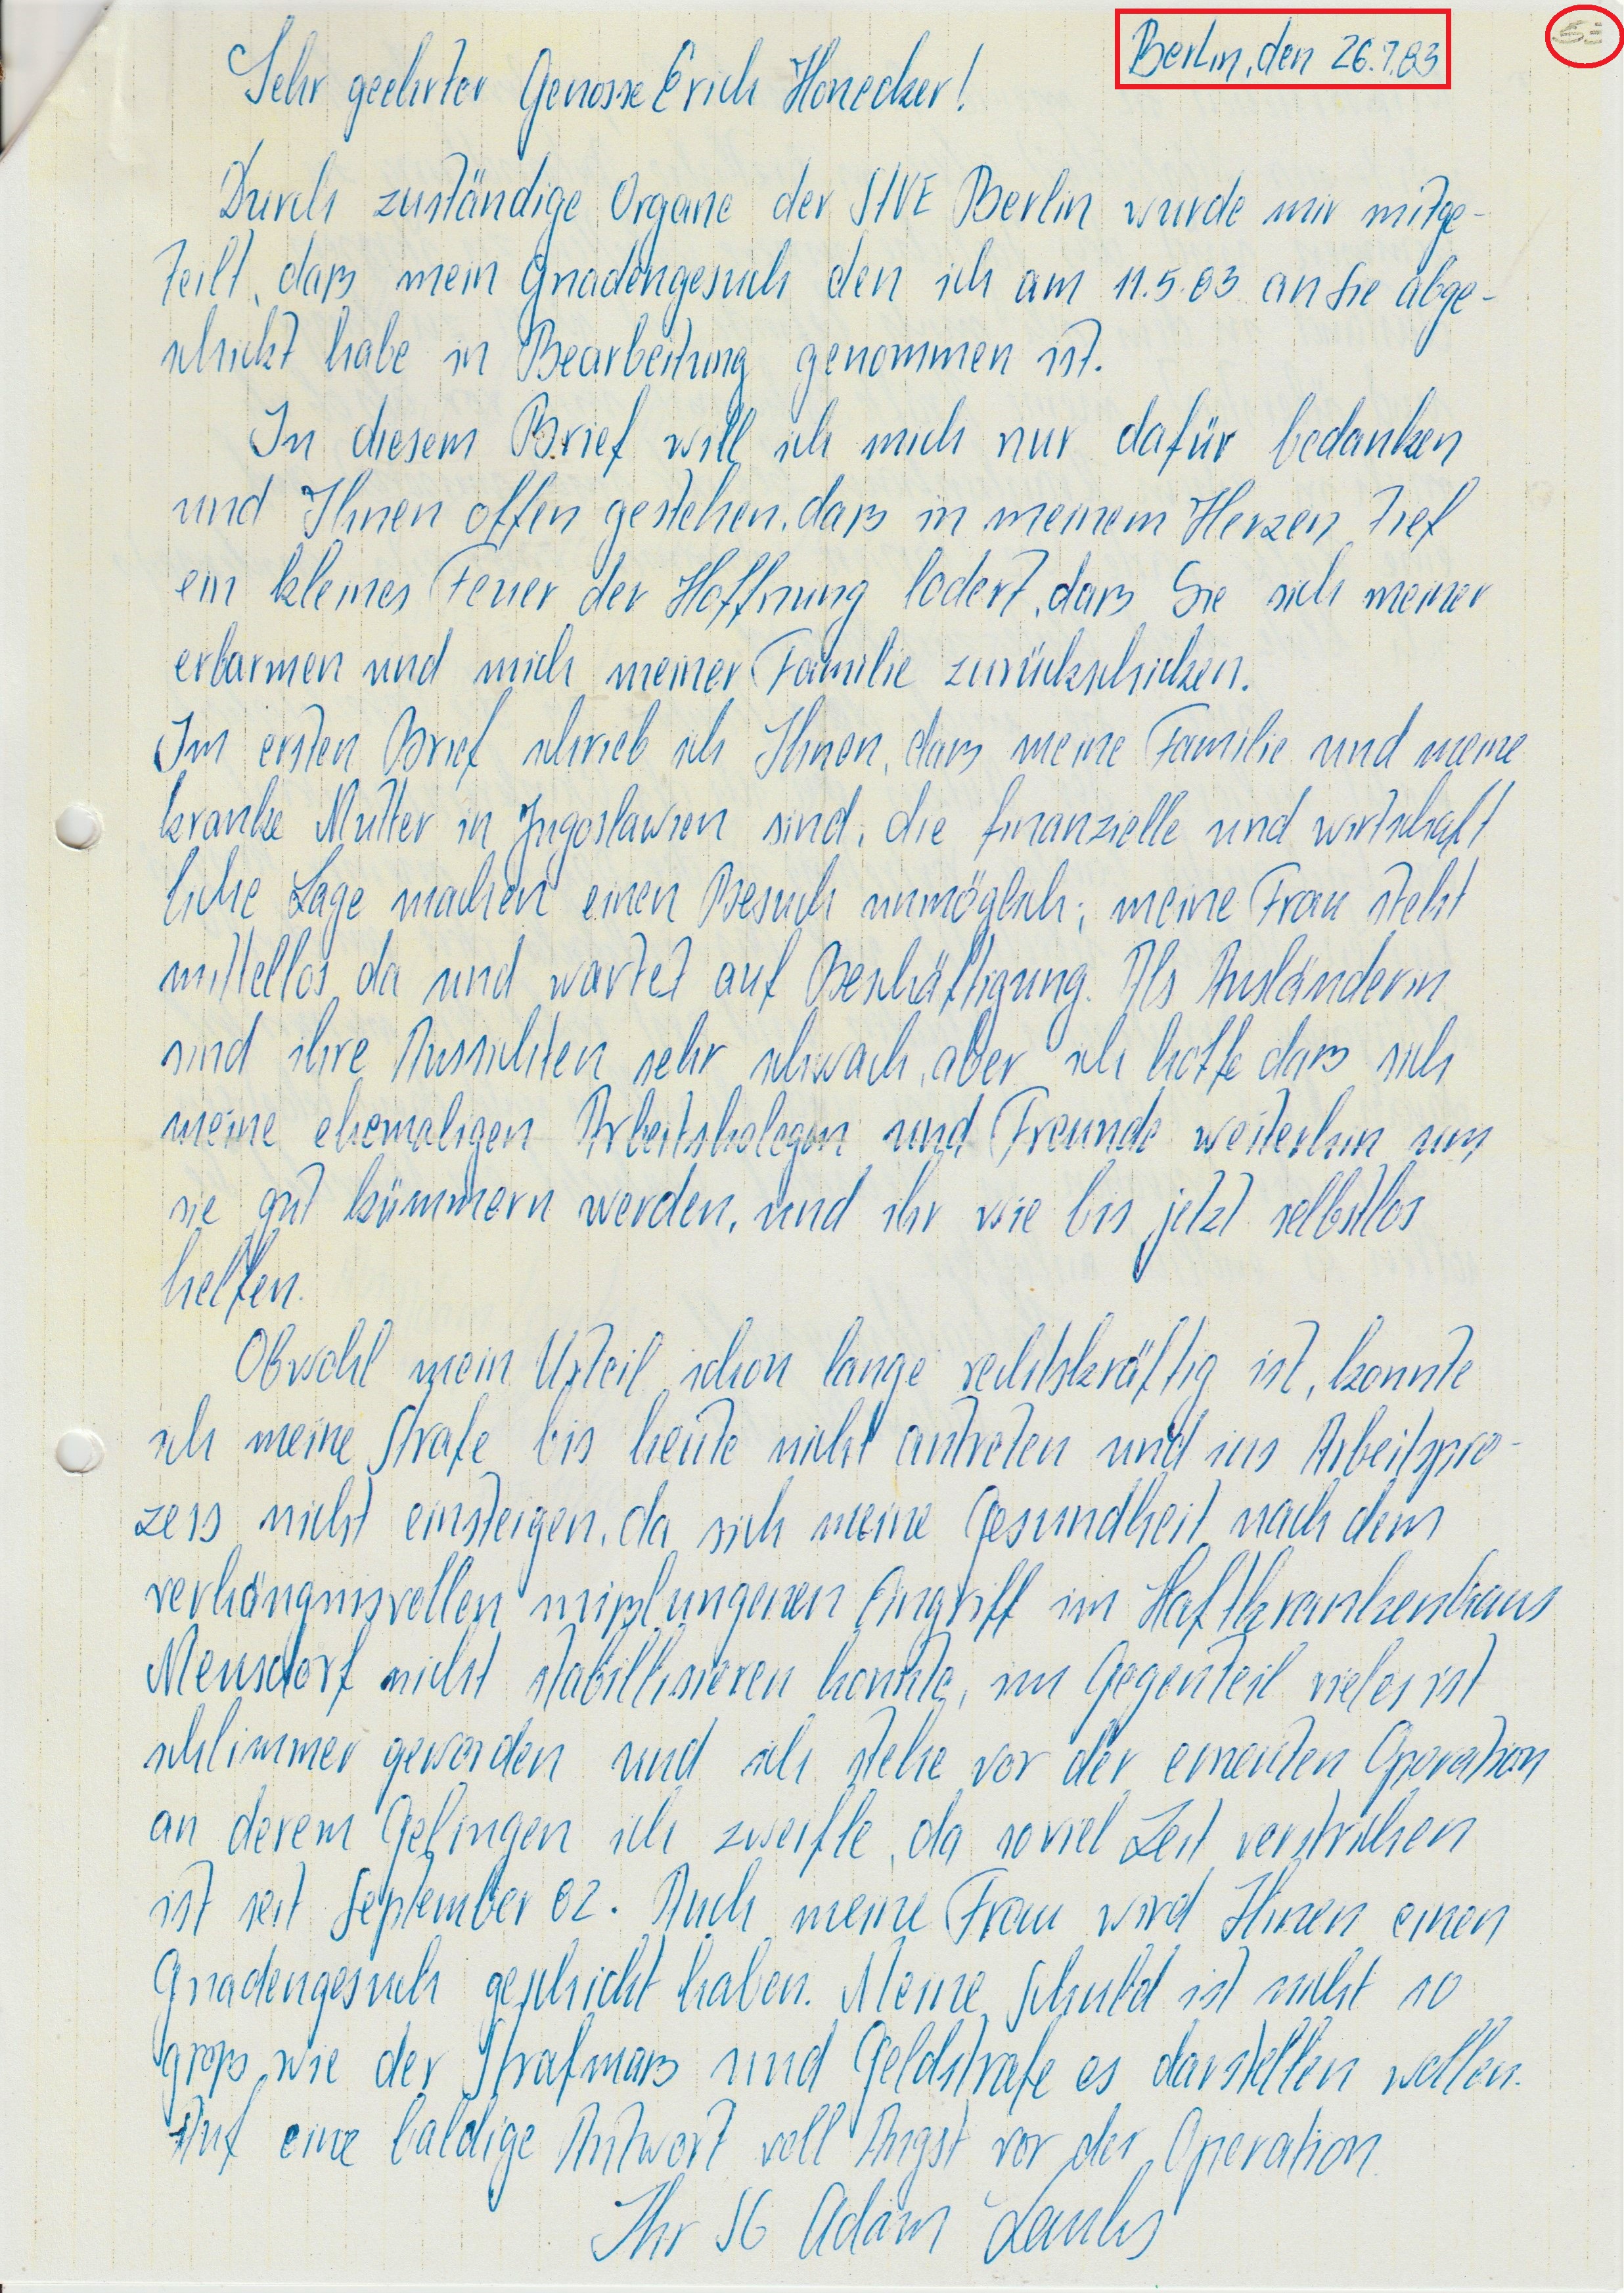 Berlin, den 26.7.83
Sehr geehrter Genosse Erich Honecker!
Durch zuständige Organe der StVE Berlin wurde mir mitge-
teilt, daß mein Gnadengesuch den ich am 11.5.83 an Sie abge-
schickt habe in Bearbeitung genommen ist.
In diesem Brief will ich mich nur dafür bedanken
und Ihnen offen gestehen, daß in meinem Herzen tief
ein kleines Feuer der Hoffnung lodert, daß Sie sich meiner
erbarmen und mich meiner Familie zurückschicken.
Im ersten Brief schrieb ich Ihnen, daß meine Familie und meine
kranke Mutter in Jugoslawien sind, die finanzielle und wirtschaft
liche Lage machen einen Besuch unmöglich; meine Frau steht
mittellos da und wartet auf Beschäftigung. Als Ausländerin
sind ihre Aussichten sehr schwach, aber ich hoffe daß sich
meine ehemaligen Arbeitskolegen und Freunde weiterhin um
sie gut kümmern werden, und ihr wie bis jetzt selbstlos
helfen.
Obwohl mein Urteil schon lange rechtskräftig ist, konnte
ich meine Strafe bis heute nicht antreten und ins Arbeitspro-
zess nicht einsteigen, da sich meine Gesundheit nach dem
verhängnisvollen mißlungenen Eingriff im Haftkrankenhaus
Meusdorf nicht stabillisieren konnte, im Gegenteil vieles ist
schlimmer geworden und ich stehe vor der erneuten Operation
an derem Gelingen ich zweifle, da soviel Zeit verstrichen
ist seit September 82. Auch meine Frau wird Ihnen einen
Gnadengesuch geschickt haben. Meine Schuld ist nicht so
groß wie der Strafmaß und Geldstrafe es darstellen wollen.
Auf eine baldige Antwort voll Angst vor der Operation
Ihr SG Adam Lauks